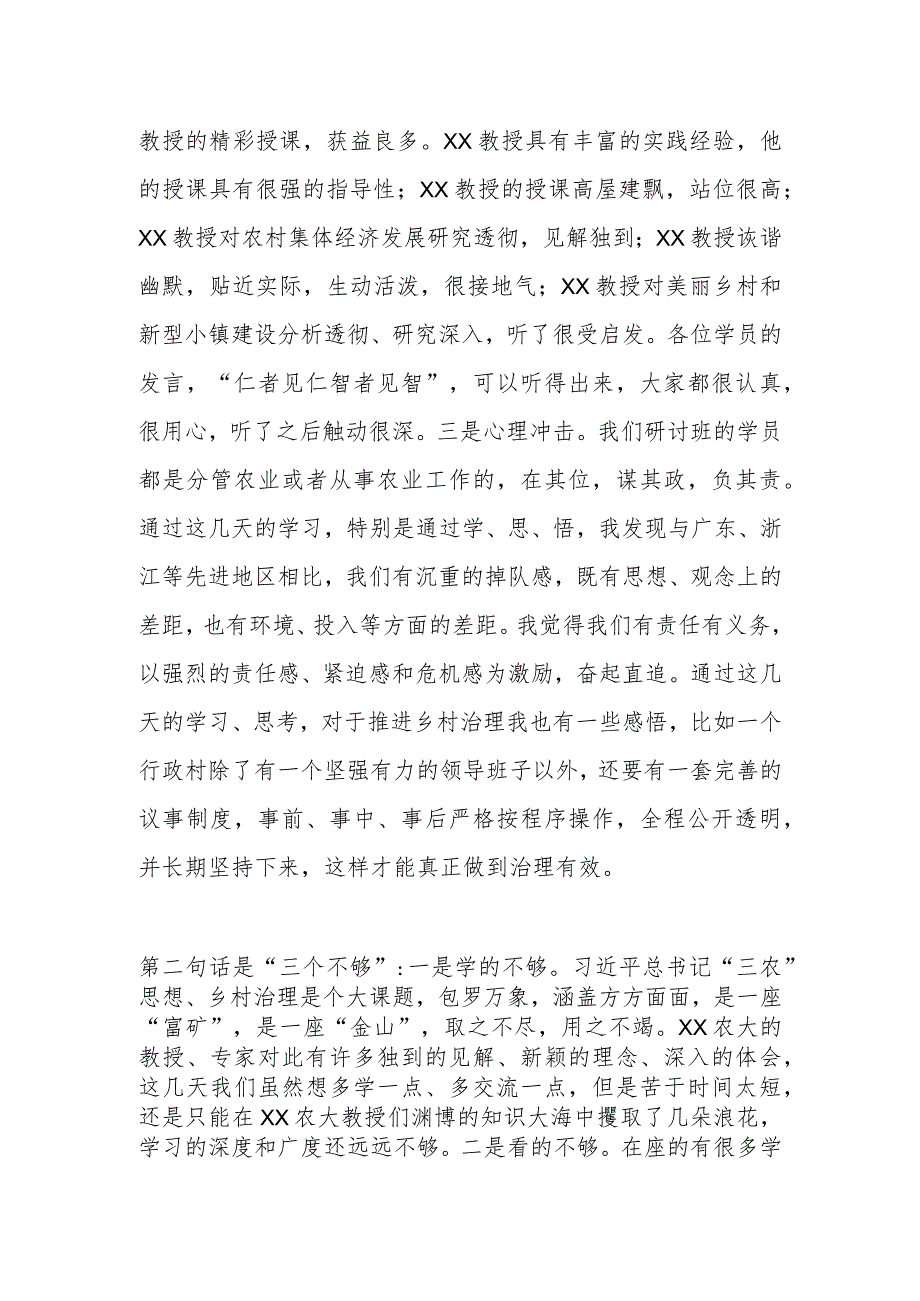 教授的精彩授课，获益良多。XX教授具有丰富的实践经验，他
的授课具有很强的指导性；XX教授的授课高屋建飘，站位很高；
XX教授对农村集体经济发展研究透彻，见解独到；XX教授诙谐
幽默，贴近实际，生动活泼，很接地气；XX教授对美丽乡村和
新型小镇建设分析透彻、研究深入，听了很受启发。各位学员的
发言，“仁者见仁智者见智”，可以听得出来，大家都很认真，
很用心，听了之后触动很深。三是心理冲击。我们研讨班的学员
都是分管农业或者从事农业工作的，在其位，谋其政，负其责。
通过这几天的学习，特别是通过学、思、悟，我发现与广东、浙
江等先进地区相比，我们有沉重的掉队感，既有思想、观念上的
差距，也有环境、投入等方面的差距。我觉得我们有责任有义务，
以强烈的责任感、紧迫感和危机感为激励，奋起直追。通过这几
天的学习、思考，对于推进乡村治理我也有一些感悟，比如一个
行政村除了有一个坚强有力的领导班子以外，还要有一套完善的
议事制度，事前、事中、事后严格按程序操作，全程公开透明，
并长期坚持下来，这样才能真正做到治理有效。
第二句话是“三个不够”:一是学的不够。习近平总书记“三农”
思想、乡村治理是个大课题，包罗万象，涵盖方方面面，是一座
“富矿”，是一座“金山”，取之不尽，用之不竭。XX农大的
教授、专家对此有许多独到的见解、新颖的理念、深入的体会，
这几天我们虽然想多学一点、多交流一点，但是苦于时间太短，
还是只能在XX农大教授们渊博的知识大海中攫取了几朵浪花，
学习的深度和广度还远远不够。二是看的不够。在座的有很多学